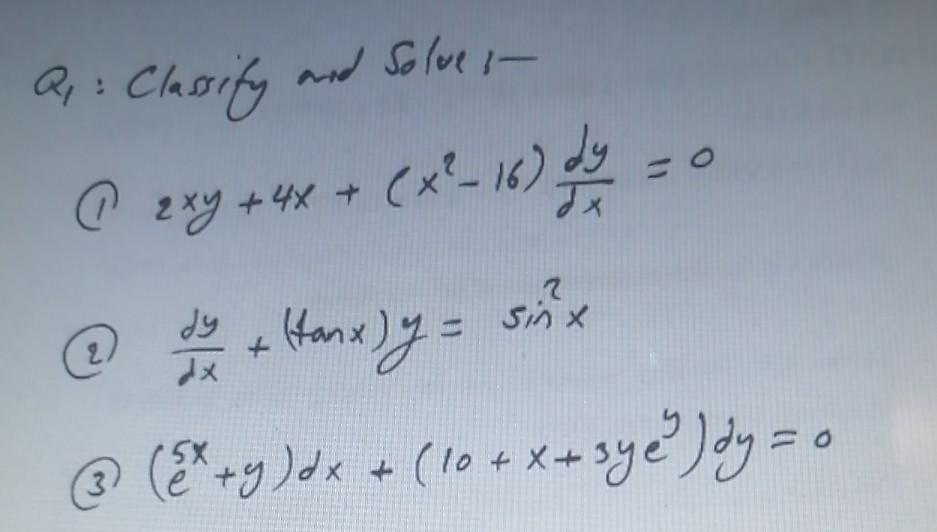 Q1 : Classify and Solve :—
① 2xy + 4x + (x² - 16) dy/dx = 0
② dy/dx + (tan x) y = sin² x
③ (e^5x + y) dx + (10 + x + 3ye^y) dy = 0